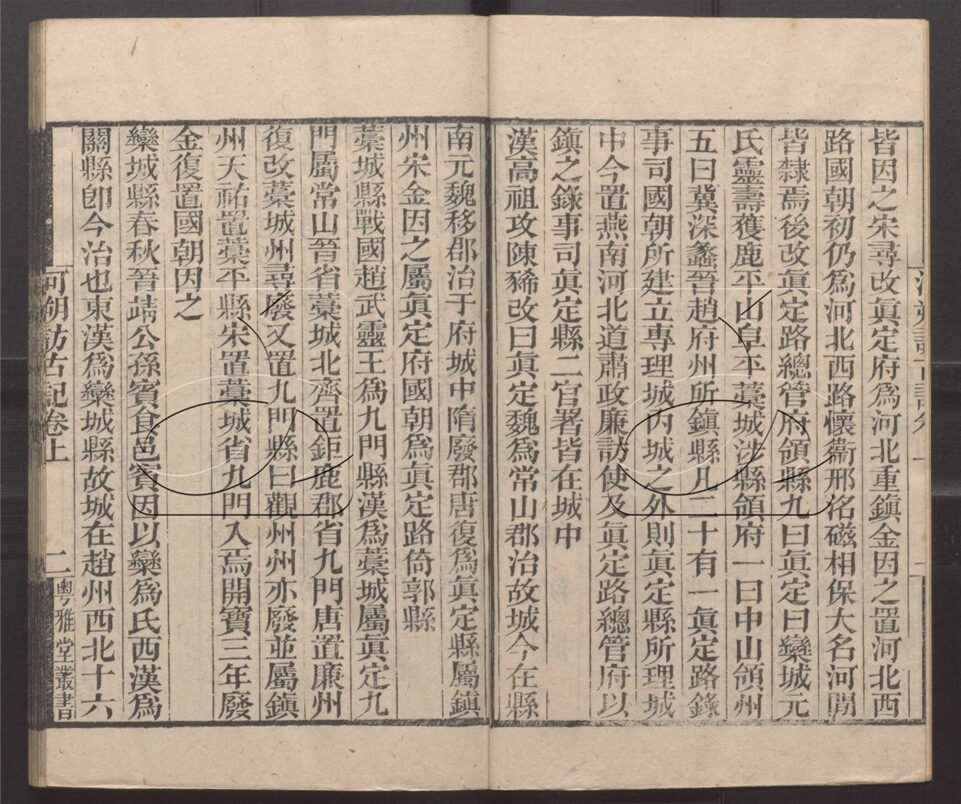 皆因之宋尋改眞定府爲河北重鎮金因之置河北西
路國朝初仍爲河北西路懷衞邢洺磁相保大名河閒
皆隸焉後改眞定路總管府領縣九曰眞定曰欒城元
氏靈壽獲鹿平山阜平藁城涉縣領府一曰中山領州
五曰冀深蠡晉趙府州所鎮縣凡二十有一眞定路錄
事司國朝所建立專理城內城之外則眞定縣所理城
中今置燕南河北道肅政廉訪使及眞定路總管府以
鎮之錄事司眞定縣二官署皆在城中
漢高祖攻陳豨改曰眞定魏爲常山郡治故城今在縣
南元魏移郡治于府城中隋廢郡唐復爲眞定縣屬鎮
州宋金因之屬眞定府國朝爲眞定路倚郭縣
藁城縣戰國趙武靈王爲九門縣漢爲藁城屬眞定九
門屬常山晉省藁城北齊置鉅鹿郡省九門唐置廉州
復改藁城州尋廢又置九門縣曰觀州州亦廢並屬鎮
州天祐置藁平縣宋置藁城省九門入焉開寶三年廢
金復置國朝因之
欒城縣春秋晉靖公孫賓食邑賓因以欒爲氏西漢爲
關縣卽今治也東漢爲欒城縣故城在趙州西北十六
河朔訪古記卷上
二
粵雅堂叢書